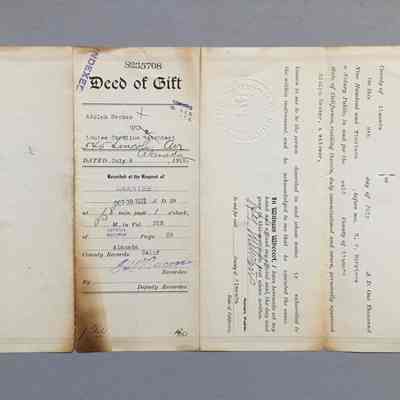 INDEXED
S235708
Deed of Gift
Adolph Becker
TO
Louise Caroline
Lincoln Ave
Alameda
DATED July 8
Recorded at the Request of
GRANTEE
OCT 30 1921 A. D. 19
at min. past 1 o'clock,
M. in Vol. 218
Page 89
Alameda Calif
County Records
Recorder.
By
Deputy Recorder.
known to me to be the person described in and whose name is subscribed to
the within instrument, and he acknowledged to me that he executed the same.
In Witness Whereof I have hereunto set my
hand and affixed my official seal, the day and
year in this certificate first above written.
Notary Public
In and for said County of Alameda
State of California.
County of Alameda
On this 8th day of July A. D. One Thousand
Nine Hundred and before me,
a Notary Public in and for the said County of Alameda
State of California, residing therein, duly commissioned and sworn, personally appeared
Adolph Becker, a widower,